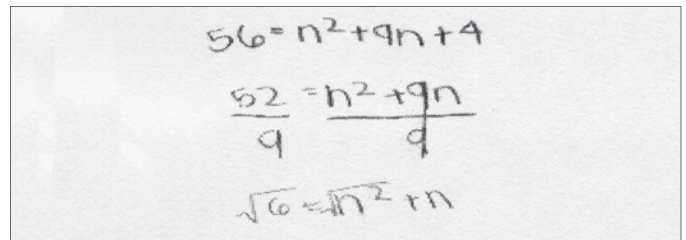 56 = n² + 9n + 4
52/9 = n² + 9n/9
√6 = √n² + n